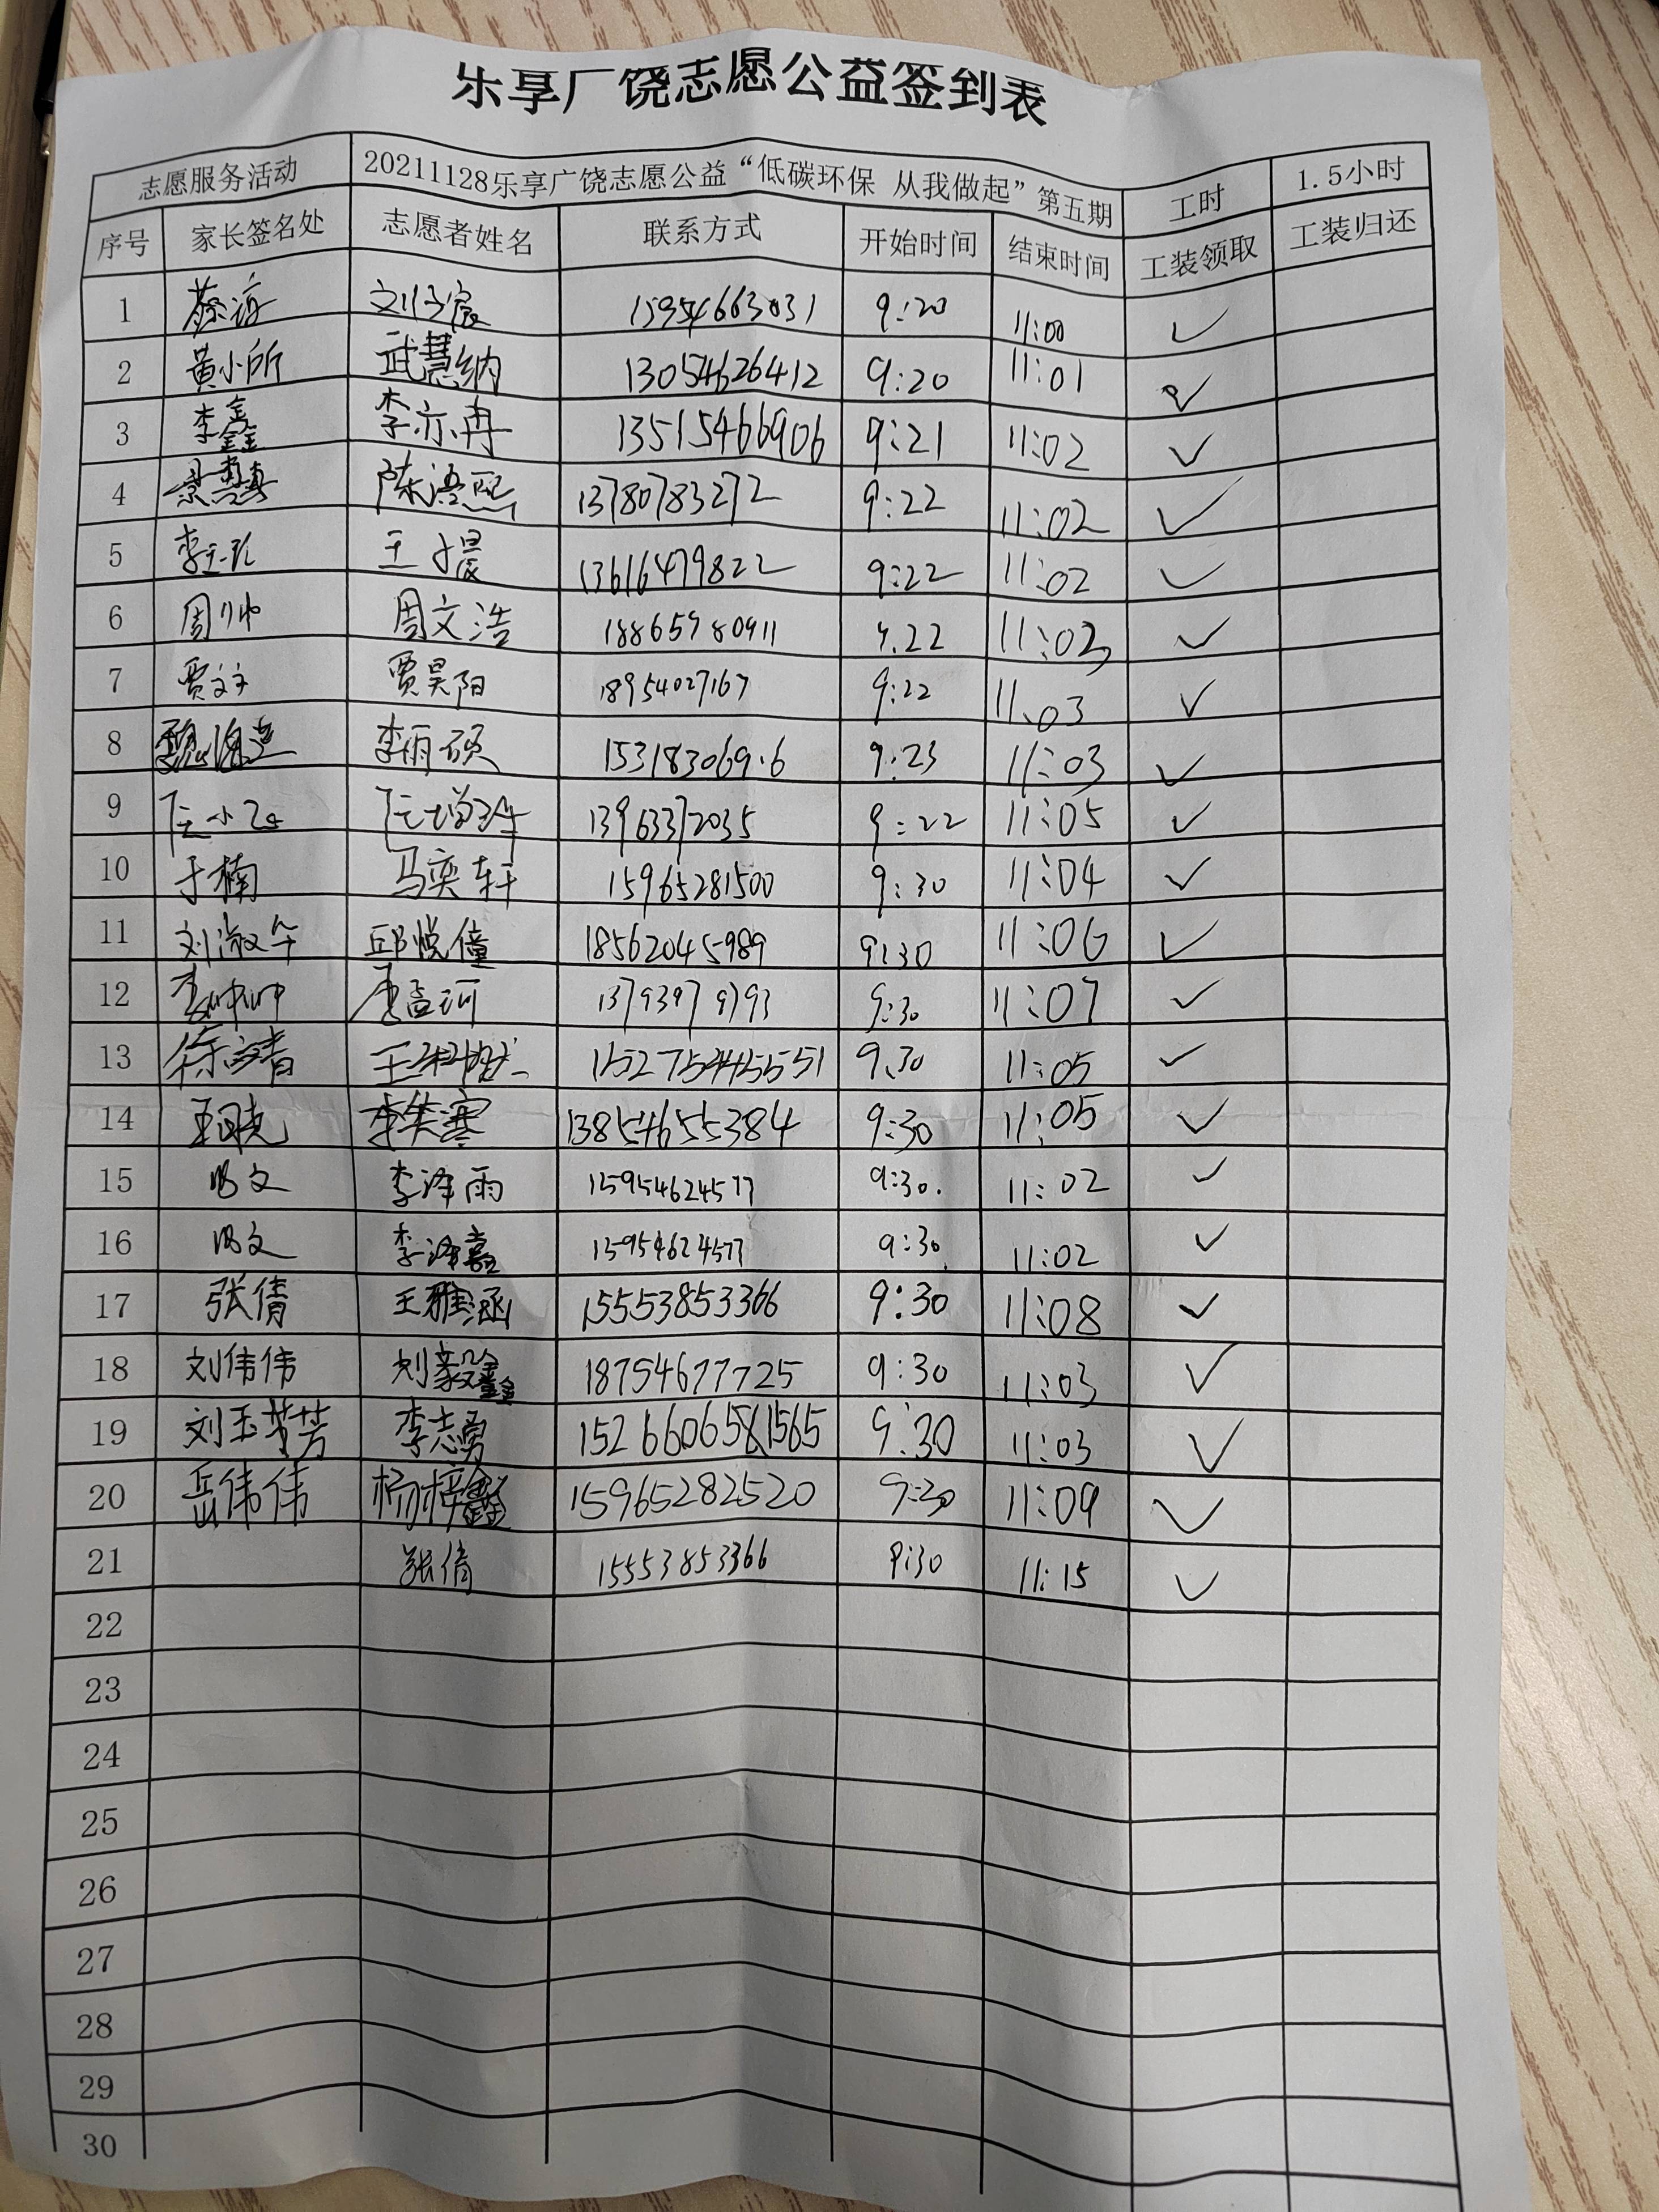 乐享广饶志愿公益签到表
志愿服务活动 20211128乐享广饶志愿公益“低碳环保 从我做起”第五期 工时 1.5小时
序号 家长签名处 志愿者姓名 联系方式 开始时间 结束时间 工装领取 工装归还
1 15954663031 9:20 11:00 ✓
2 黄小所 武慧纳 13054626412 9:20 11:01 ✓
3 李鑫 李亦冉 13515466906 9:21 11:02 ✓
4 景慧真 陈澄熙 13780783272 9:22 11:02 ✓
5 王子晨 13616479822 9:22 11:02 ✓
6 周帅 周文浩 18865980911 9.22 11:03 ✓
7 贾文文 贾昊阳 18954027167 9:22 11.03 ✓
8 李雨硕 9:23 11:03 ✓
9 13963372035 9:22 11:05 ✓
10 于楠 马奕轩 15965281500 9:30 11:04 ✓
11 刘淑华 邱悦僮 18562045989 9:30 11:06 ✓
12 李帅帅 13793979793 9:30 11:07 ✓
13 9.30 11:05 ✓
14 13854655384 9:30 11:05 ✓
15 李泽雨 15954624577 9:30. 11:02 ✓
16 李泽嘉 15954624577 9:30 11:02 ✓
17 张倩 王雅涵 15553853366 9:30 11:08 ✓
18 刘伟伟 刘毅鑫 18754677725 9:30 11:03 ✓
19 刘玉芳 李志勇 9:30 11:03 ✓
20 岳伟伟 杨梓鑫 15965282520 9:30 11:09 ✓
21 张倩 15553853366 9:30 11:15 ✓
22
23
24
25
26
27
28
29
30